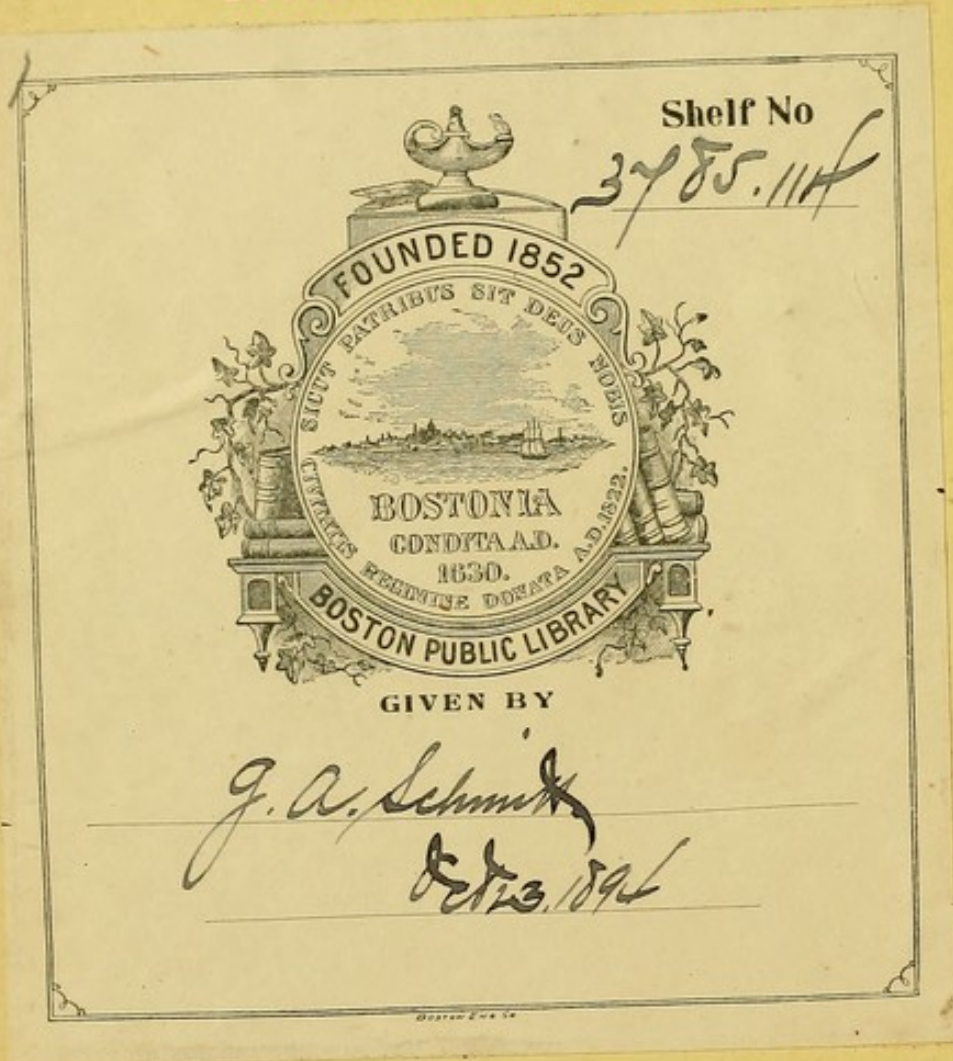 Shelf No
3785.114
FOUNDED 1852
SICUT PATRIBUS SIT DEUS NOBIS
BOSTONIA
CONDITA A.D.
1630.
CIVITATIS REGIMINE DONATA A.D. 1822.
BOSTON PUBLIC LIBRARY
GIVEN BY
G. A. Schmitt,
Oct 23, 1894
BOSTON ENG CO